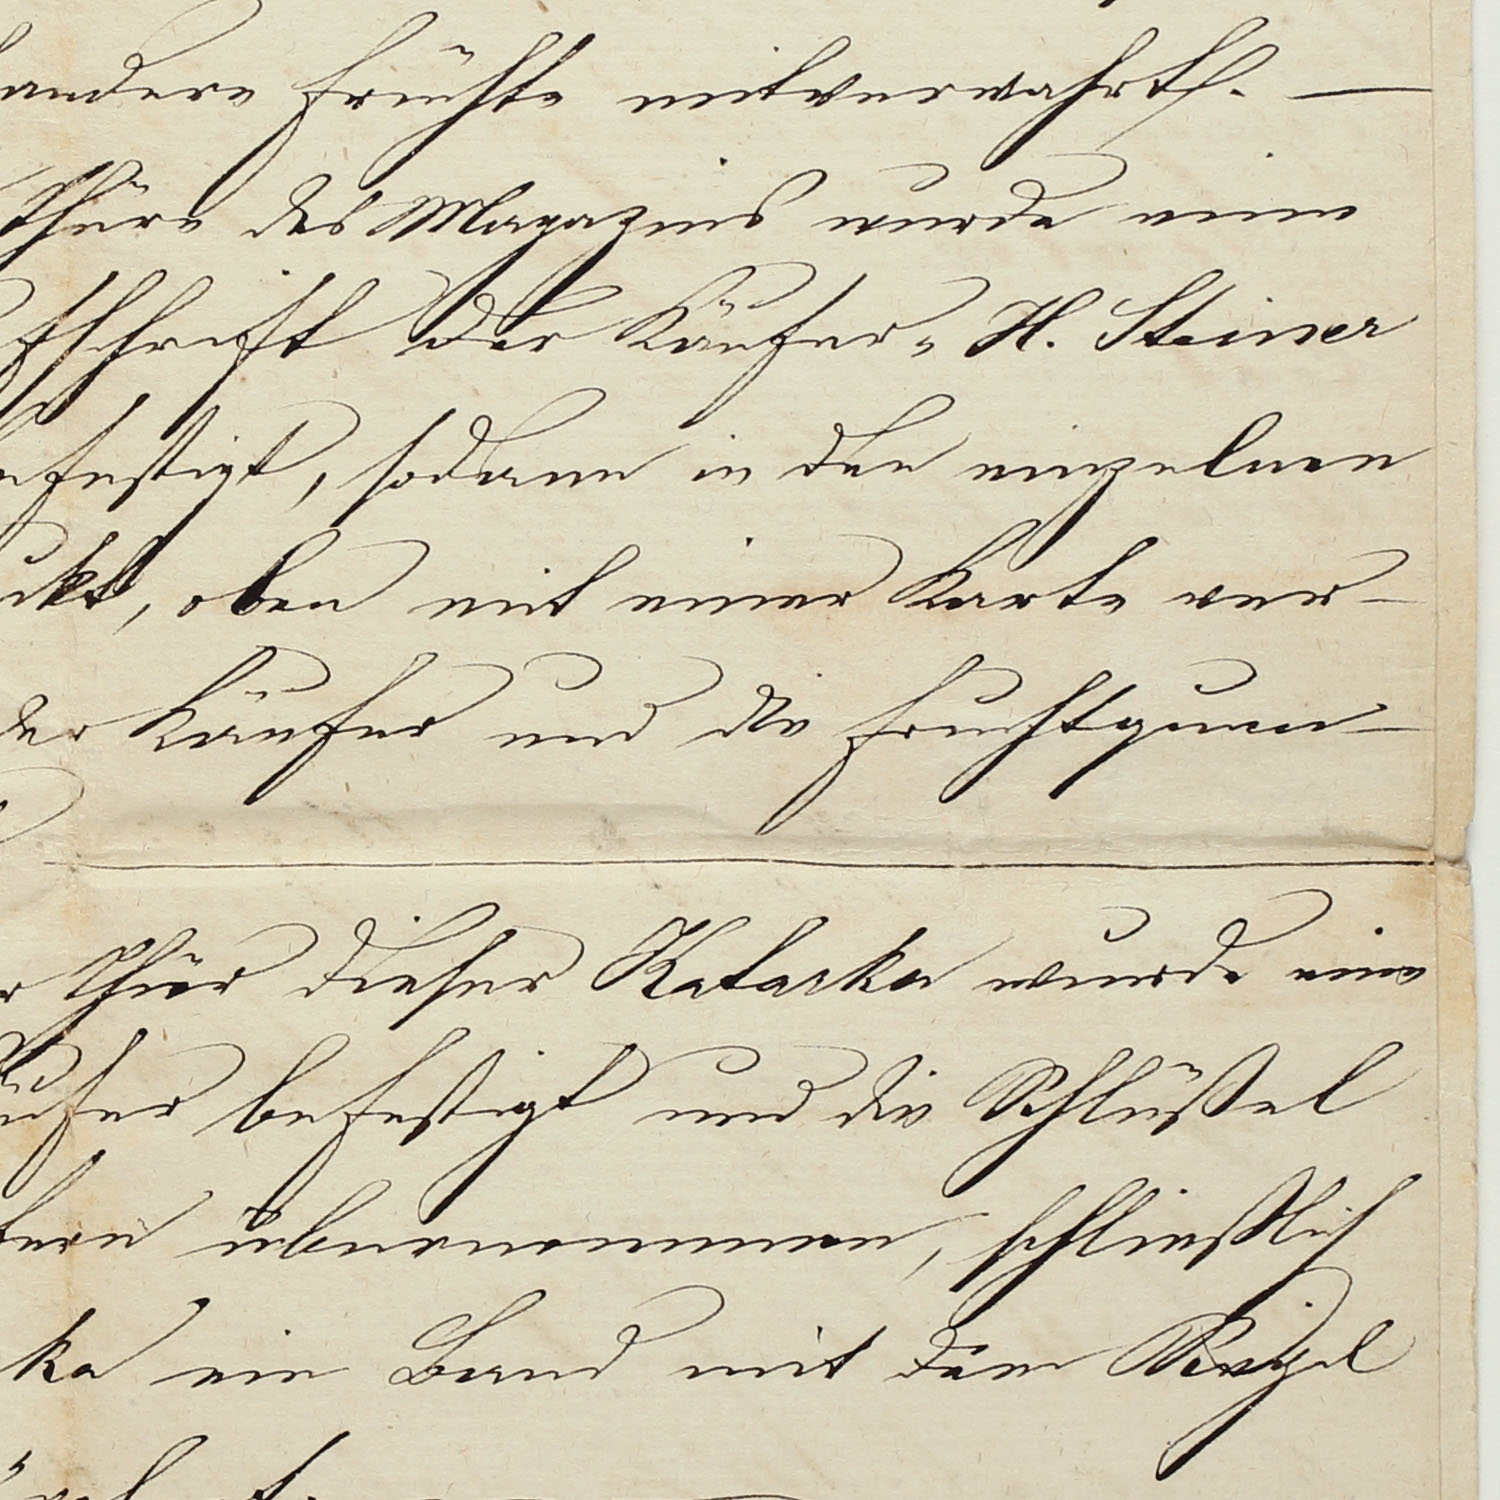 andere Früchte mitverwahrt. —
Thüre des Magazins wurde eine
fschrift der Käufer „ H. Steiner
efestigt, sodann in den einzelnen
ckt, oben mit einer Karte ver-
der Käufer und die Fruchtquan-
r Thür dieser Katarka wurde eine
ufer befestigt und die Schlüßel
fern übernommen, schließlich
ka ein Band mit dem Siegel